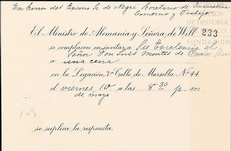 En honor del Excmo Sr. de Negri Secretario de Industria
Comercio y Trabajo
El Ministro de Alemania y Señora de Will 233
se complacen en invitar a Su Excelencia el
Señor Don Luis Montes de Oca
a una cena
en la Legación 3ª Calle de Marsella Nº 44
el viernes 10 a las 8:30 p.m
de mayo
se suplica la respuesta.